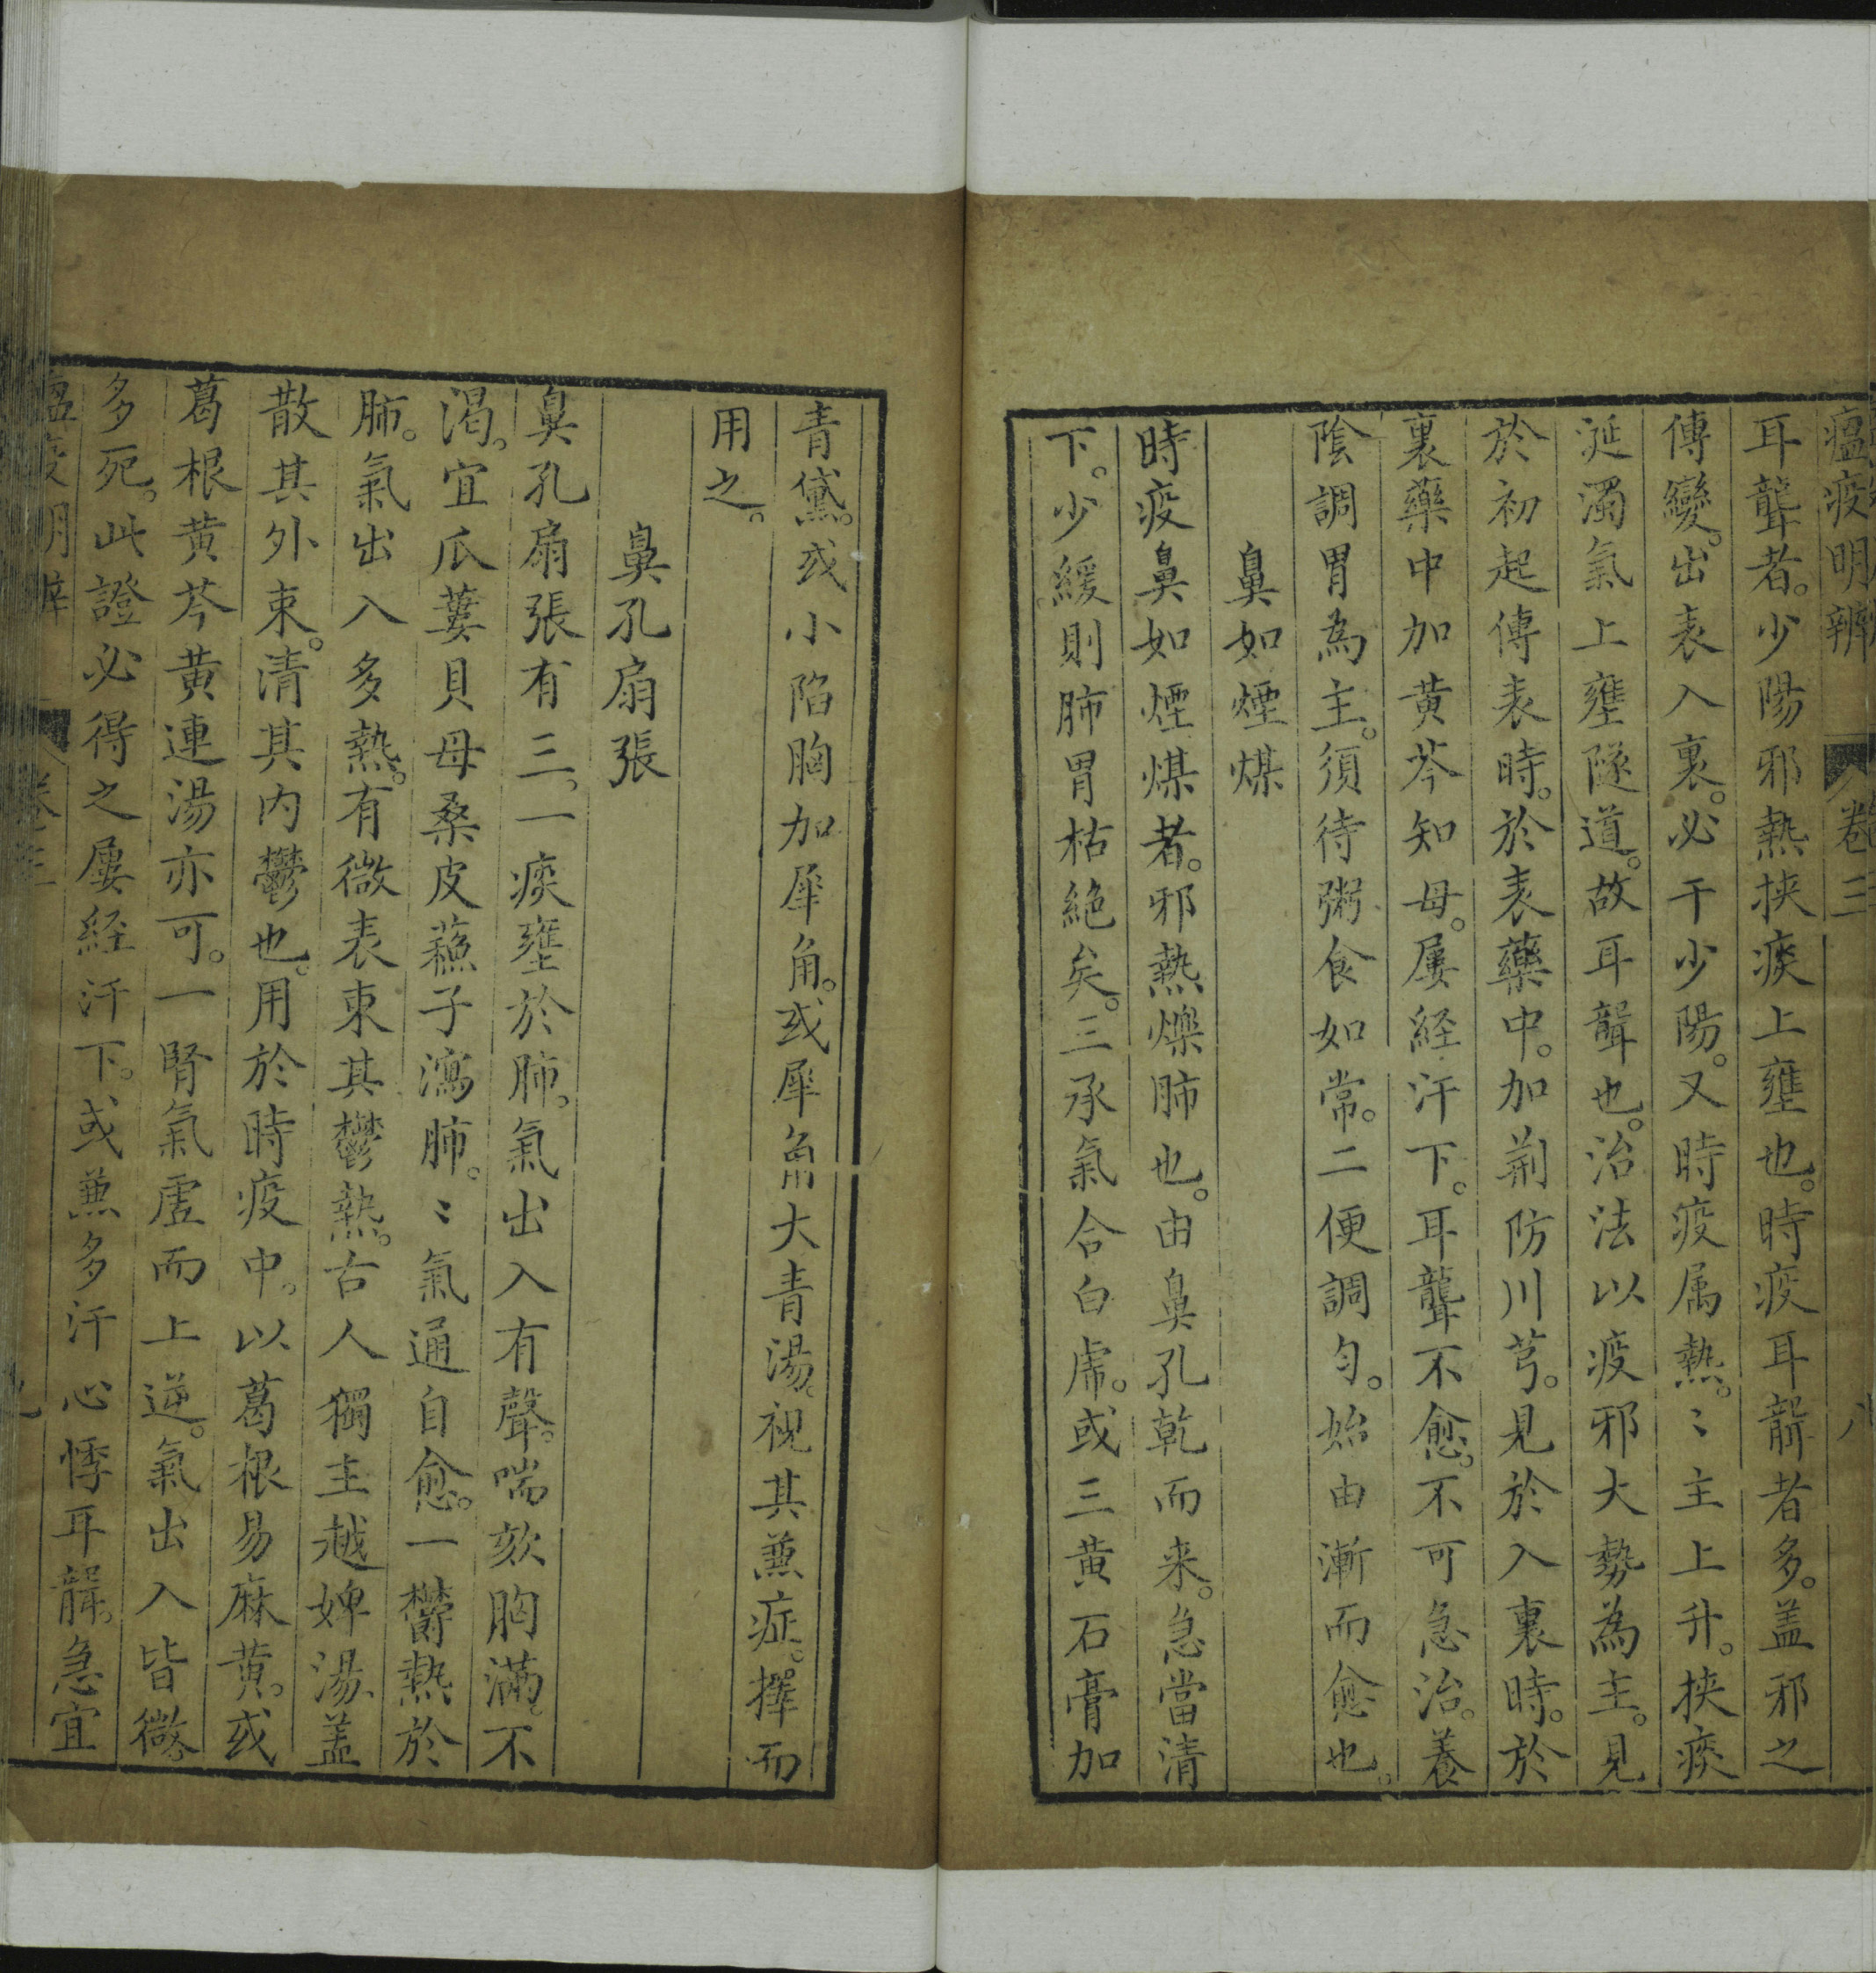 瘟疫明辨 卷三 八
耳聾者。少陽邪熱挾痰上壅也。時疫耳聾者多。盖邪之
傳變。出表入裏。必干少陽。又時疫属熱。〻主上升。挾痰
涎濁氣上壅隧道。故耳聾也。治法以疫邪大勢為主。見
於初起傳表時。於表藥中。加荊防川芎。見於入裏時。於
裏藥中加黄芩知母。屢経汗下。耳聾不愈。不可急治。養
陰調胃為主。須待粥食如常。二便調匀。始由漸而愈也。
鼻如煙煤
時疫鼻如煙煤者。邪熱爍肺也。由鼻孔乾而来。急當清
下。少緩則肺胃枯絶矣。三承氣合白虎。或三黄石膏加
青黛。或小陷胸加犀角。或犀角大青湯。視其兼症。擇而
用之。
鼻孔扇張
鼻孔扇張有三。一痰壅於肺。氣出入有聲。喘欬胸滿。不
渴。宜瓜蔞貝母桑皮蘓子瀉肺。〻氣通自愈。一欝熱於
肺。氣出入多熱。有微表束其鬱熱。古人獨主越婢湯、盖
散其外束。清其内鬱也。用於時疫中。以葛根易麻黄。或
葛根黄芩黄連湯亦可。一腎氣虛而上逆。氣出入皆微。
多死。此證必得之屢経汗下。或兼多汗心悸耳聾。急宜
瘟疫明辨 卷三